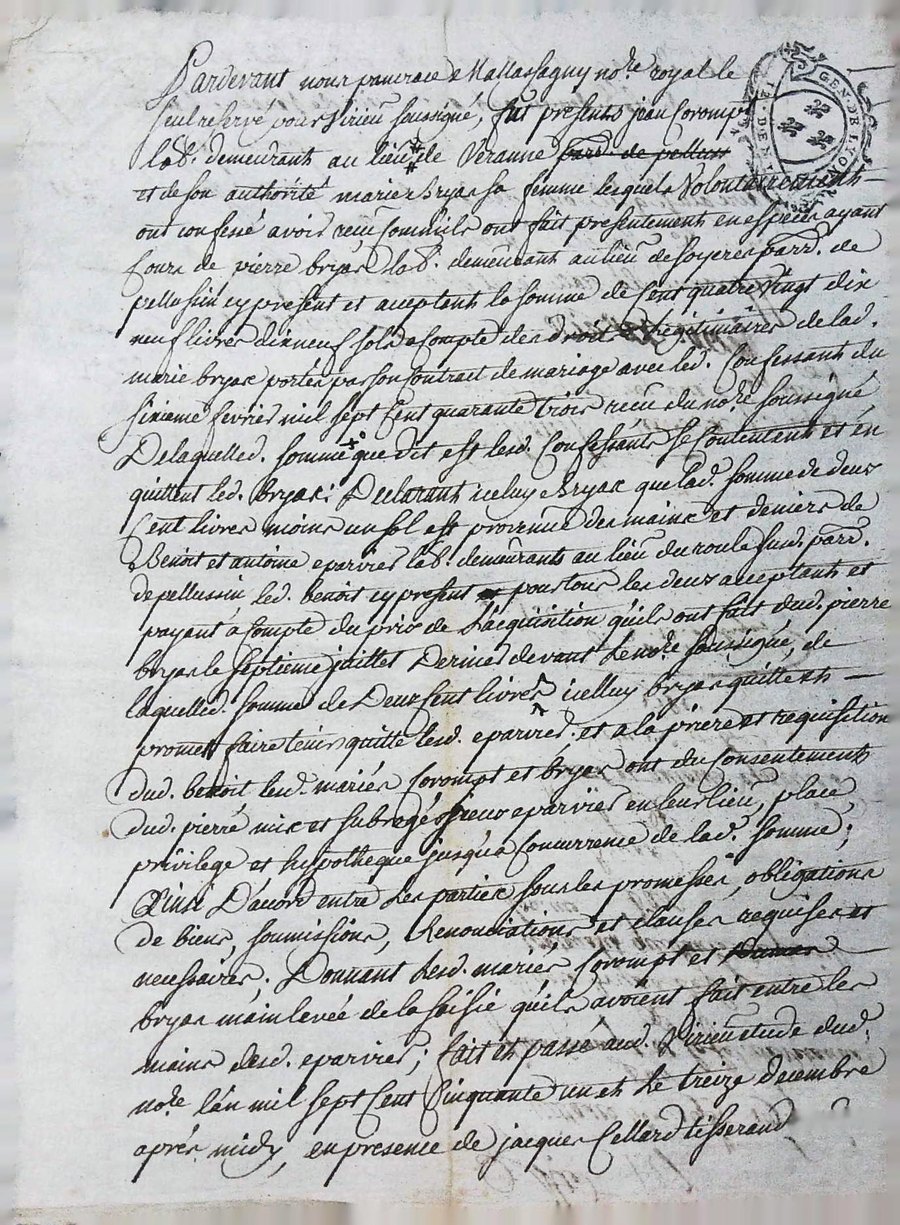 Pardevant nous pancrace Mallassagny no.re royal le
seul reservé pour Virieu soussigné, fut presents jean Corompt
lab.r demeurant au lieu de Veranne parr. de pelluss
et de son authorité marie Bryas sa femme lesquels volontairement
ont confessé avoir reçu comm'ils ont fait presentement en especes ayant
cours de pierre bryas lab.r demeurant au lieu de soyeres parr. de
pellussin cy present et acceptant la somme de cent quatre vingt dix
neuf livres dixneuf sols a compte des droits legitimaires de lad.
marie bryas portés par son contract de mariage avec led. Confessant du
sixieme fevrier mil sept cent quarante trois reçu du no.re soussigné
De laquelle d. somme que dit est lesd. Confessants se contentent et en
quittent led. bryas; Declarant iceluy Bryas que lad. somme de deux
Cent livres moins un sol est provenue des mains et deniers de
Benoit et antoine eparvier lab.rs demeurants au lieu du roule susd. parr.
de pellussin led. benoit cy present pour tous les deux acceptants et
payant a compte du prix de l'acquisition qu'ils ont fait dud. pierre
bryas le septieme juillet dernier devant le no.re soussigné, de
laquelle d. somme de Deux Cent livres icelluy bryas quitte et
promet faire tenir quitte lesd. eparvier. et a la priere et requisition
dud. benoit lesd. mariés Corompt et bryas ont du consentement
dud. pierre mis et subrogé iceux eparvier en leur lieu, place
privilege et hypotheque jusqu'a concurrence de lad. somme;
Ainsi D'acord entre les parties sous les promesses, obligations
de biens, soumissions, Renonciations et clauses requises et
necessaires. Donnant lesd. mariés Corompt et
bryas main levée de la saisie qu'ils avoient fait entre les
mains desd. eparvier; fait et passé aud. Virieu etude dud.
no.re l'an mil sept cent Cinquante un et le treize decembre
après midy, en presence de jacques Cellard tisserand